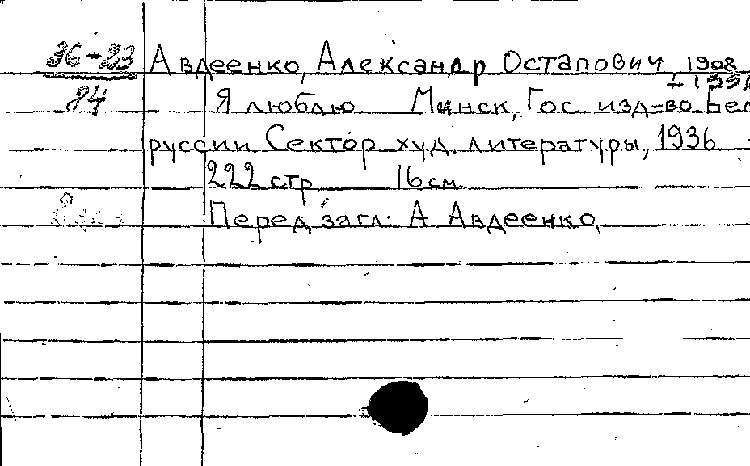 36-23 Авдеенко, Александр Остапович 1908
84 Я люблю Минск, Гос изд-во Бел
руссии Сектор худ. литературы, 1936
222 стр 16 см
Перед загл: А Авдеенко,